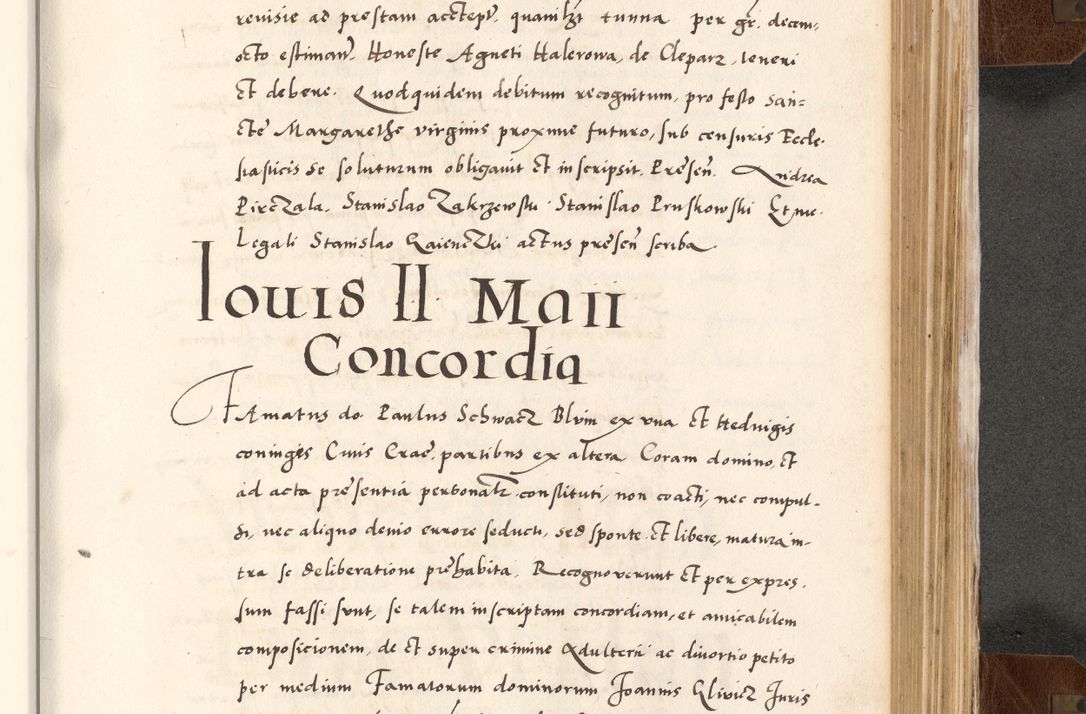 reuisie ad prestam acctept. quamlibet tunna per gr. decem,
octo estimant. Honeste Agneti Halerowa, de Cleparz, teneri
et debere. Quodquidem debitum recognitum, pro festo San=
cte Margarethe virginis proxime futuro, sub censuris Eccle-
siasticis se soluturum obligauit et inscripsit. Presen. Andrea
Pirczala. Stanislao Zakrzewski. Stanislao Pruskowski Et me.
Legali Stanislao actus presen scriba
Iouis II Maii
Concordia
Famatus do. Paulus Schwacz ex vna et Heduigis
coniuges Ciuis Crac. partibus ex altera Coram domino, et
ad acta presentia personalr constituti, non coacti, nec compul-
si, nec aliquo deuio errore seducti, sed sponte et libere, matura in-
tra se deliberatione prehabita, Recognouerunt et per expres,
sum fassi sunt, se talem inscriptam concordiam, et amicabilem
composicionem, de et super crimine Adulterii ac diuortio petito
per medium Famatorum dominorum Joannis Juris